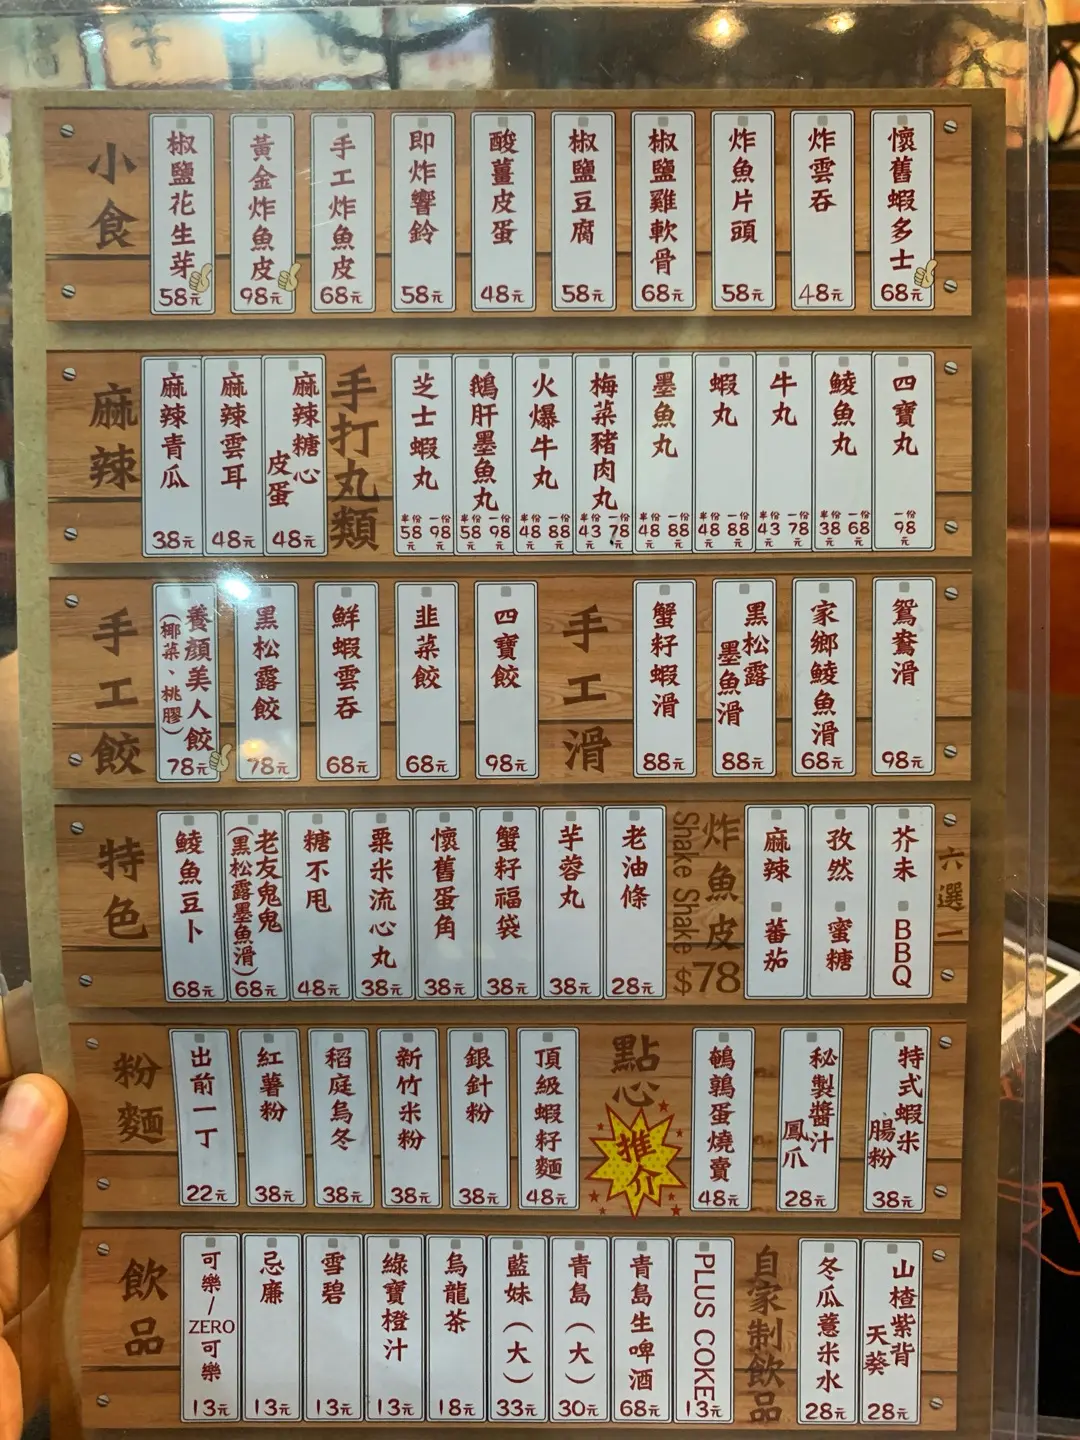 小食
椒鹽花生芽 58元
黃金炸魚皮 98元
手工炸魚皮 68元
即炸響鈴 58元
酸薑皮蛋 48元
椒鹽豆腐 58元
椒鹽雞軟骨 68元
炸魚片頭 58元
炸雲吞 48元
懷舊蝦多士 68元
麻辣
麻辣青瓜 38元
麻辣雲耳 48元
麻辣糖心皮蛋 48元
手打丸類
芝士蝦丸 半份58元 一份98元
鵝肝墨魚丸 半份58元 一份98元
火爆牛丸 半份48元 一份88元
梅菜豬肉丸 半份43元 一份78元
墨魚丸 半份48元 一份88元
蝦丸 半份48元 一份88元
牛丸 半份43元 一份78元
鯪魚丸 半份38元 一份68元
四寶丸 一份98元
手工餃
養顏美人餃 (椰菜、桃膠) 78元
黑松露餃 78元
鮮蝦雲吞 68元
韭菜餃 68元
四寶餃 98元
手工滑
蟹籽蝦滑 88元
黑松露墨魚滑 88元
家鄉鯪魚滑 68元
鴛鴦滑 98元
特色
鯪魚豆卜 68元
老友鬼鬼 (黑松露墨魚滑) 68元
糖不甩 48元
粟米流心丸 38元
懷舊蛋角 38元
蟹籽福袋 38元
芋蓉丸 38元
老油條 28元
炸魚皮
Shake Shake $78
麻辣
蕃茄
孜然
蜜糖
芥末
BBQ
六選一
粉麵
出前一丁 22元
紅薯粉 38元
稻庭烏冬 38元
新竹米粉 38元
銀針粉 38元
頂級蝦籽麵 48元
點心
推介
鵪鶉蛋燒賣 48元
秘製醬汁鳳爪 28元
特式蝦米腸粉 38元
飲品
可樂/ZERO可樂 13元
忌廉 13元
雪碧 13元
綠寶橙汁 13元
烏龍茶 18元
藍妹(大) 33元
青島(大) 30元
青島生啤酒 68元
PLUS COKE 13元
自家制飲品
冬瓜薏米水 28元
山楂紫背天葵 28元